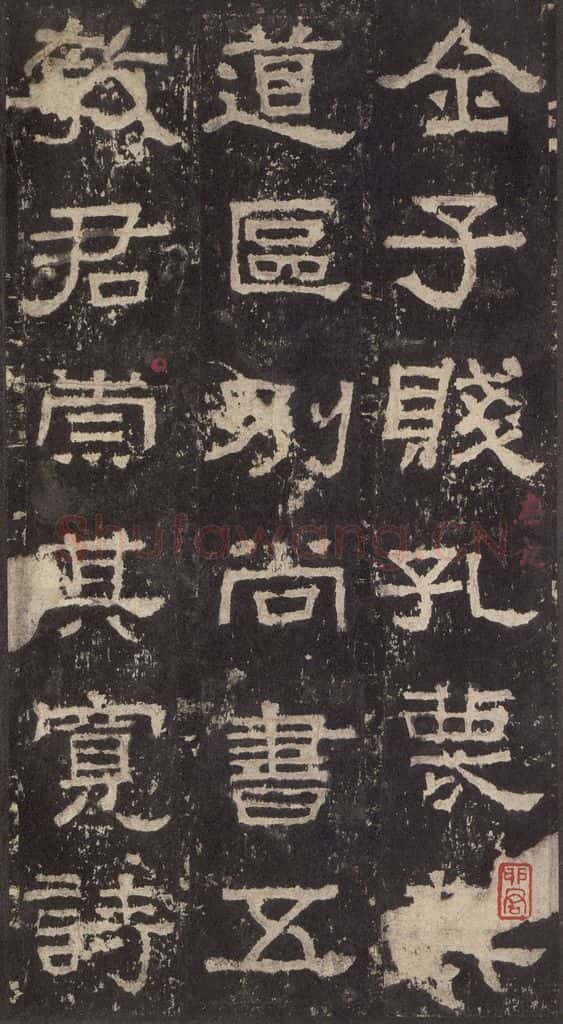 全子賤孔蔑其
道區別尚書五
教君崇其寬詩
Shufawang.CN